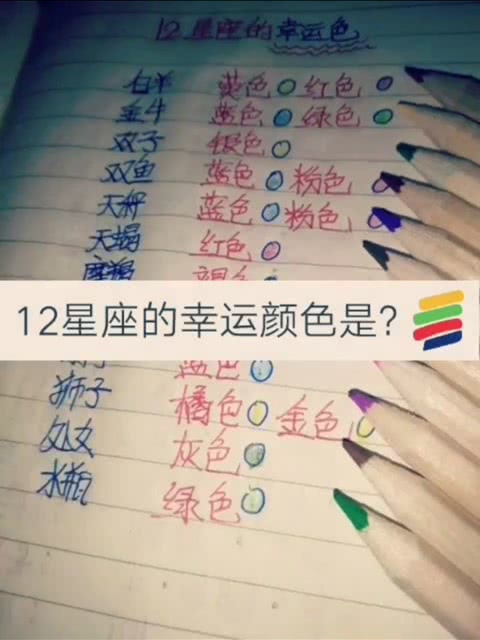 12星座的幸运色
白羊 黄色 红色
金牛 蓝色 绿色
双子 银色
双鱼 蓝色 粉色
天秤 蓝色 粉色
天蝎 红色
摩羯
12星座的幸运颜色是?
蓝色
狮子 橘色 金色
处女 灰色
水瓶 绿色